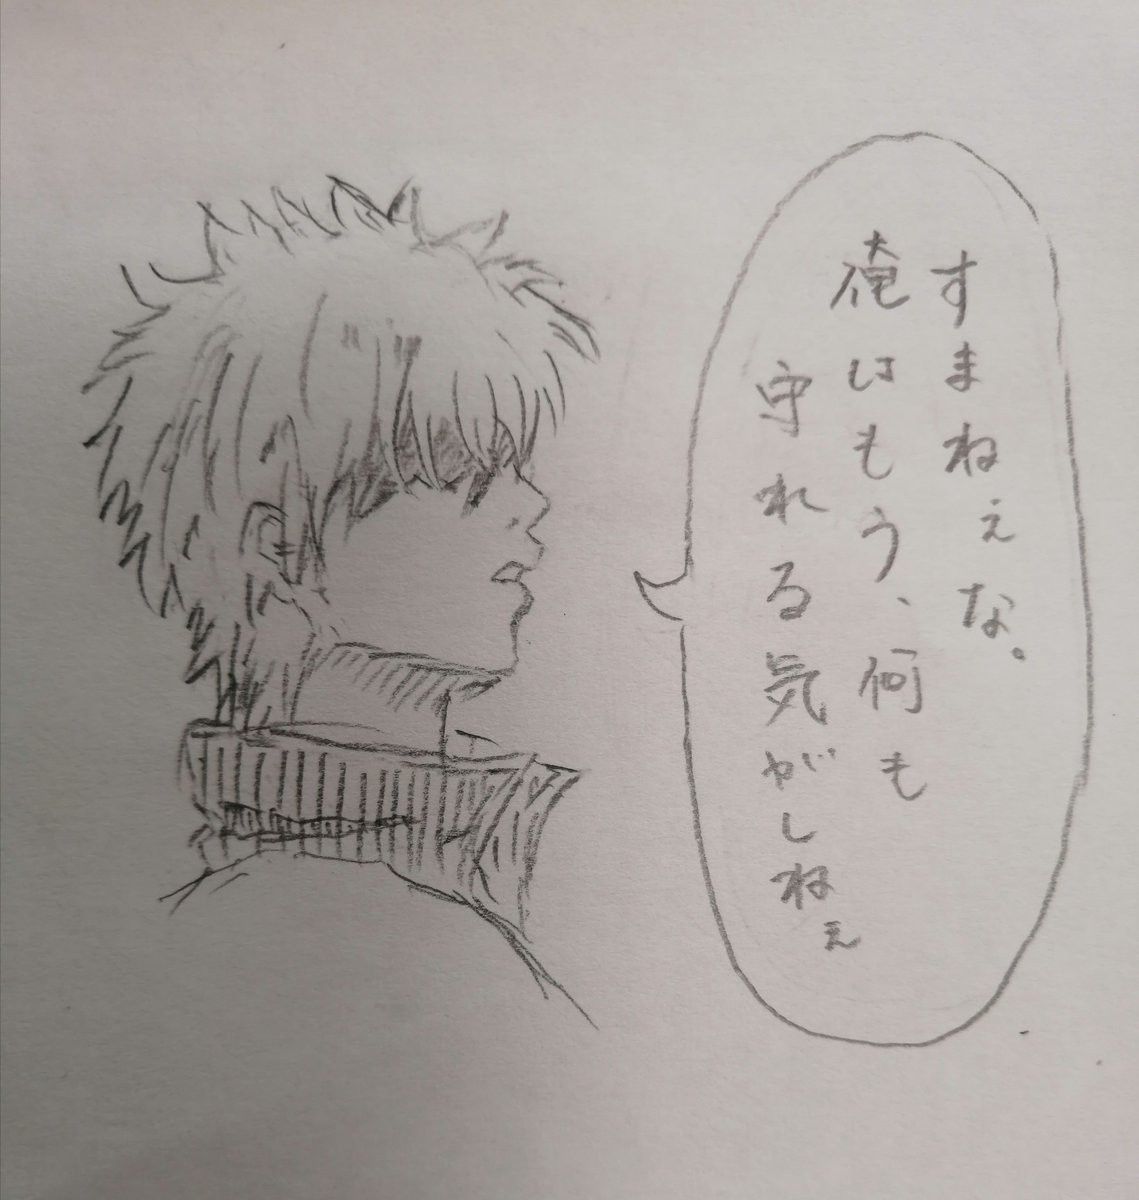 すまねぇな。
俺はもう、何も
守れる気がしねぇ